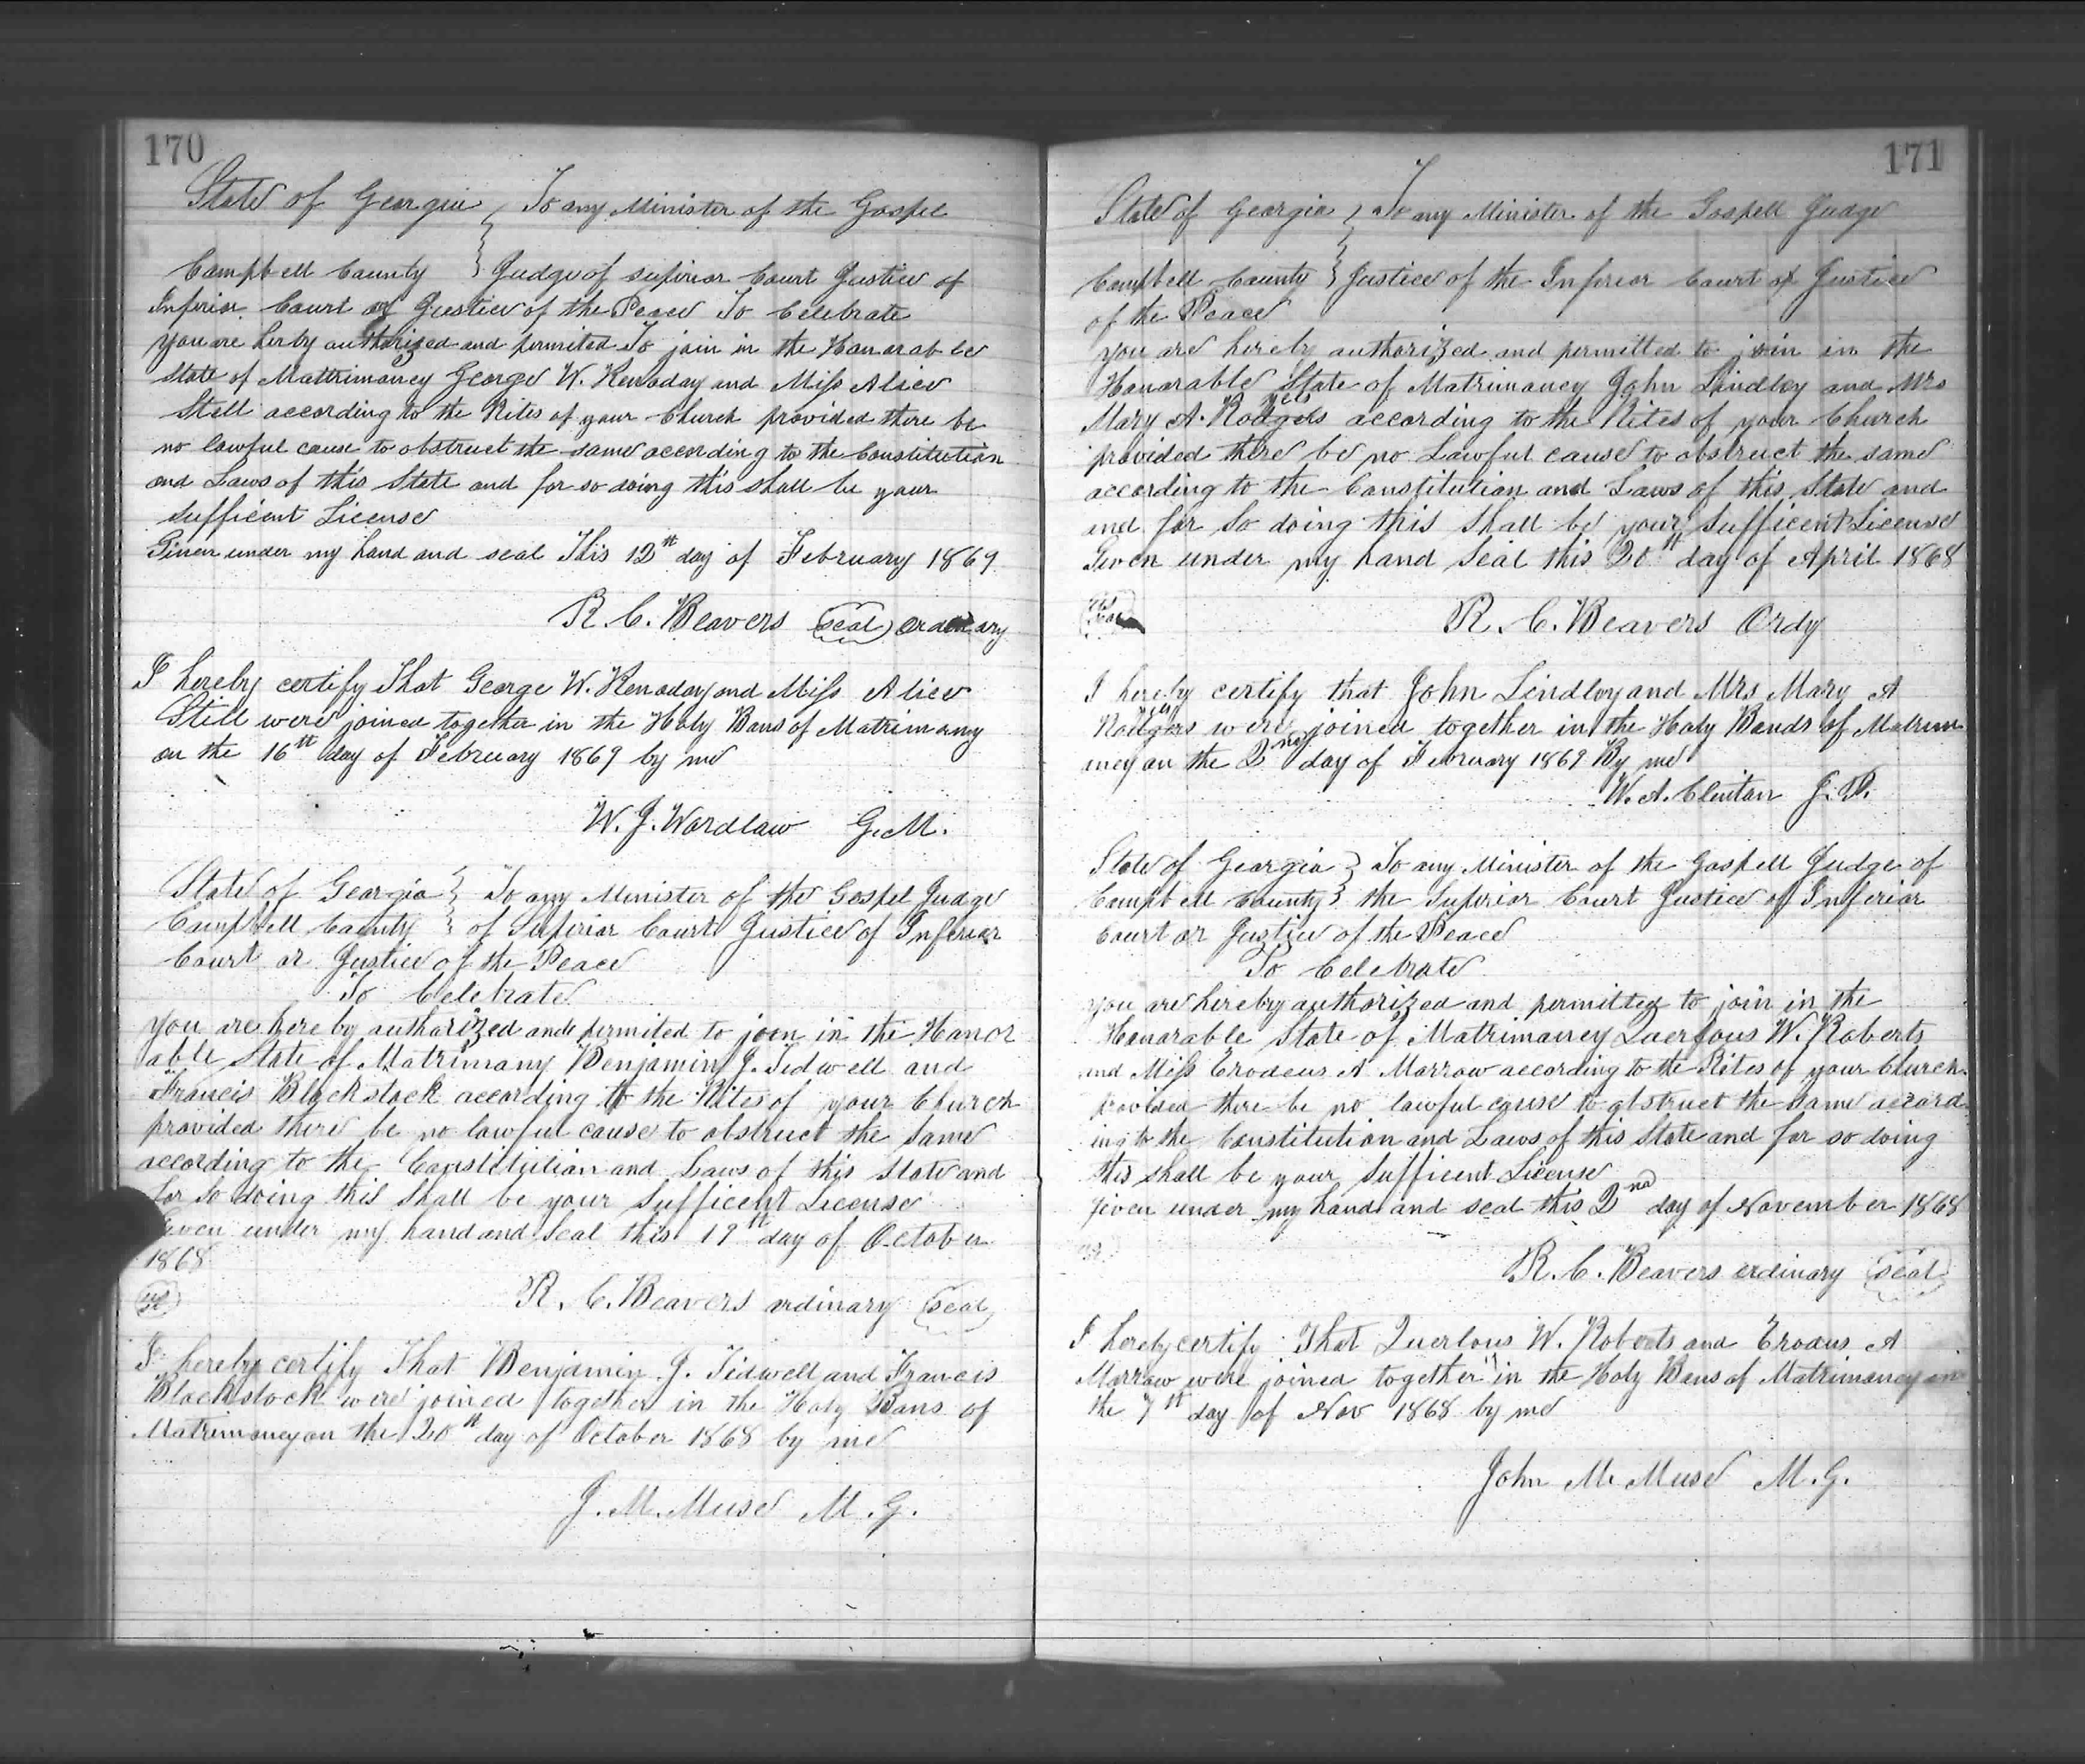 170
State of Georgia } To any Minister of the Gospel
Campbell County } Judge of superior Court Justice of
Inferior Court or Justice of the Peace To Celebrate
you are herby authorized and permited To join in the Honorable
State of Mattrimoney George W. Kenoday and Miss Alice
Still according to the Rites of your Church provided there be
no lawful cause to obstruct the same according to the Constitution
and Laws of this State and for so doing this shall be your
sufficent License
Given under my hand and seal This 12th day of February 1869
R. C. Beavers (seal) ordinary
I hereby certify That George W. Kenoday and Miss Alice
Still were joined together in the Holy Bans of Matrimony
on the 16th day of February 1869 by me
W. J. Wardlaw G.M.
State of Georgia } To any Minister of the Gospel Judge
Campbell County } of Superior Court Justice of Inferior
Court or Justice of the Peace
To Celebrate
You are hereby authorized and permited to join in the Honor
able State of Matrimony Benjamin J. Tidwell and
Francis Blackstock according to the Rites of your Church
provided there be no lawful cause to obstruct the same
according to the Constitution and Laws of this State and
for so doing this shall be your sufficent License
Given under my hand and Seal this 19th day of October
1868
R. C. Beavers ordinary (seal)
I hereby certify That Benjamin J. Tidwell and Francis
Blackstock were joined together in the Holy Bans of
Matrimoney on the 20th day of October 1868 by me
J. M. Muse M. G.
171
State of Georgia } To any Minister of the Gospell Judge
Campbell County } Justice of the Inferior Court of Justice
of the Peace
you are hereby authorized and permitted to join in the
Honarable State of Matrimoney John Lindley and Mrs
Mary A. Rodgers according to the Rites of your Church
provided there be no Lawful cause to obstruct the same
according to the Constitution and Laws of this State and
and for So doing this Shall be your sufficent License
Given under my hand Seal this 20th day of April 1868
R. C. Beavers Ordy
I hereby certify that John Lindley and Mrs Mary A
Rodgers were joined together in the Holy Bands of Matrim
oney on the 2nd day of February 1869 By me
W. A. Clinton J. P.
State of Georgia } To any Minister of the Gospell Judge of
Campbell County } the Superior Court Justice of Inferior
Court or Justice of the Peace
To Celebrate
you are hereby authorized and permitted to join in the
Honarable State of Matrimoney W. Roberts
and Miss A Morrow according to the Rites of your Church
provided there be no lawful cause to obstruct the same accord
ing to the Constitution and Laws of this State and for so doing
this shall be your Sufficent License
given under my hand and seal this 2nd day of November 1868
R. C. Beavers ordinary (seal)
I hereby certify That W. Roberts and A
Morrow were joined together in the Holy Bans of Matrimoney on
the 7th day of Nov 1868 by me
John M. Muse M. G.